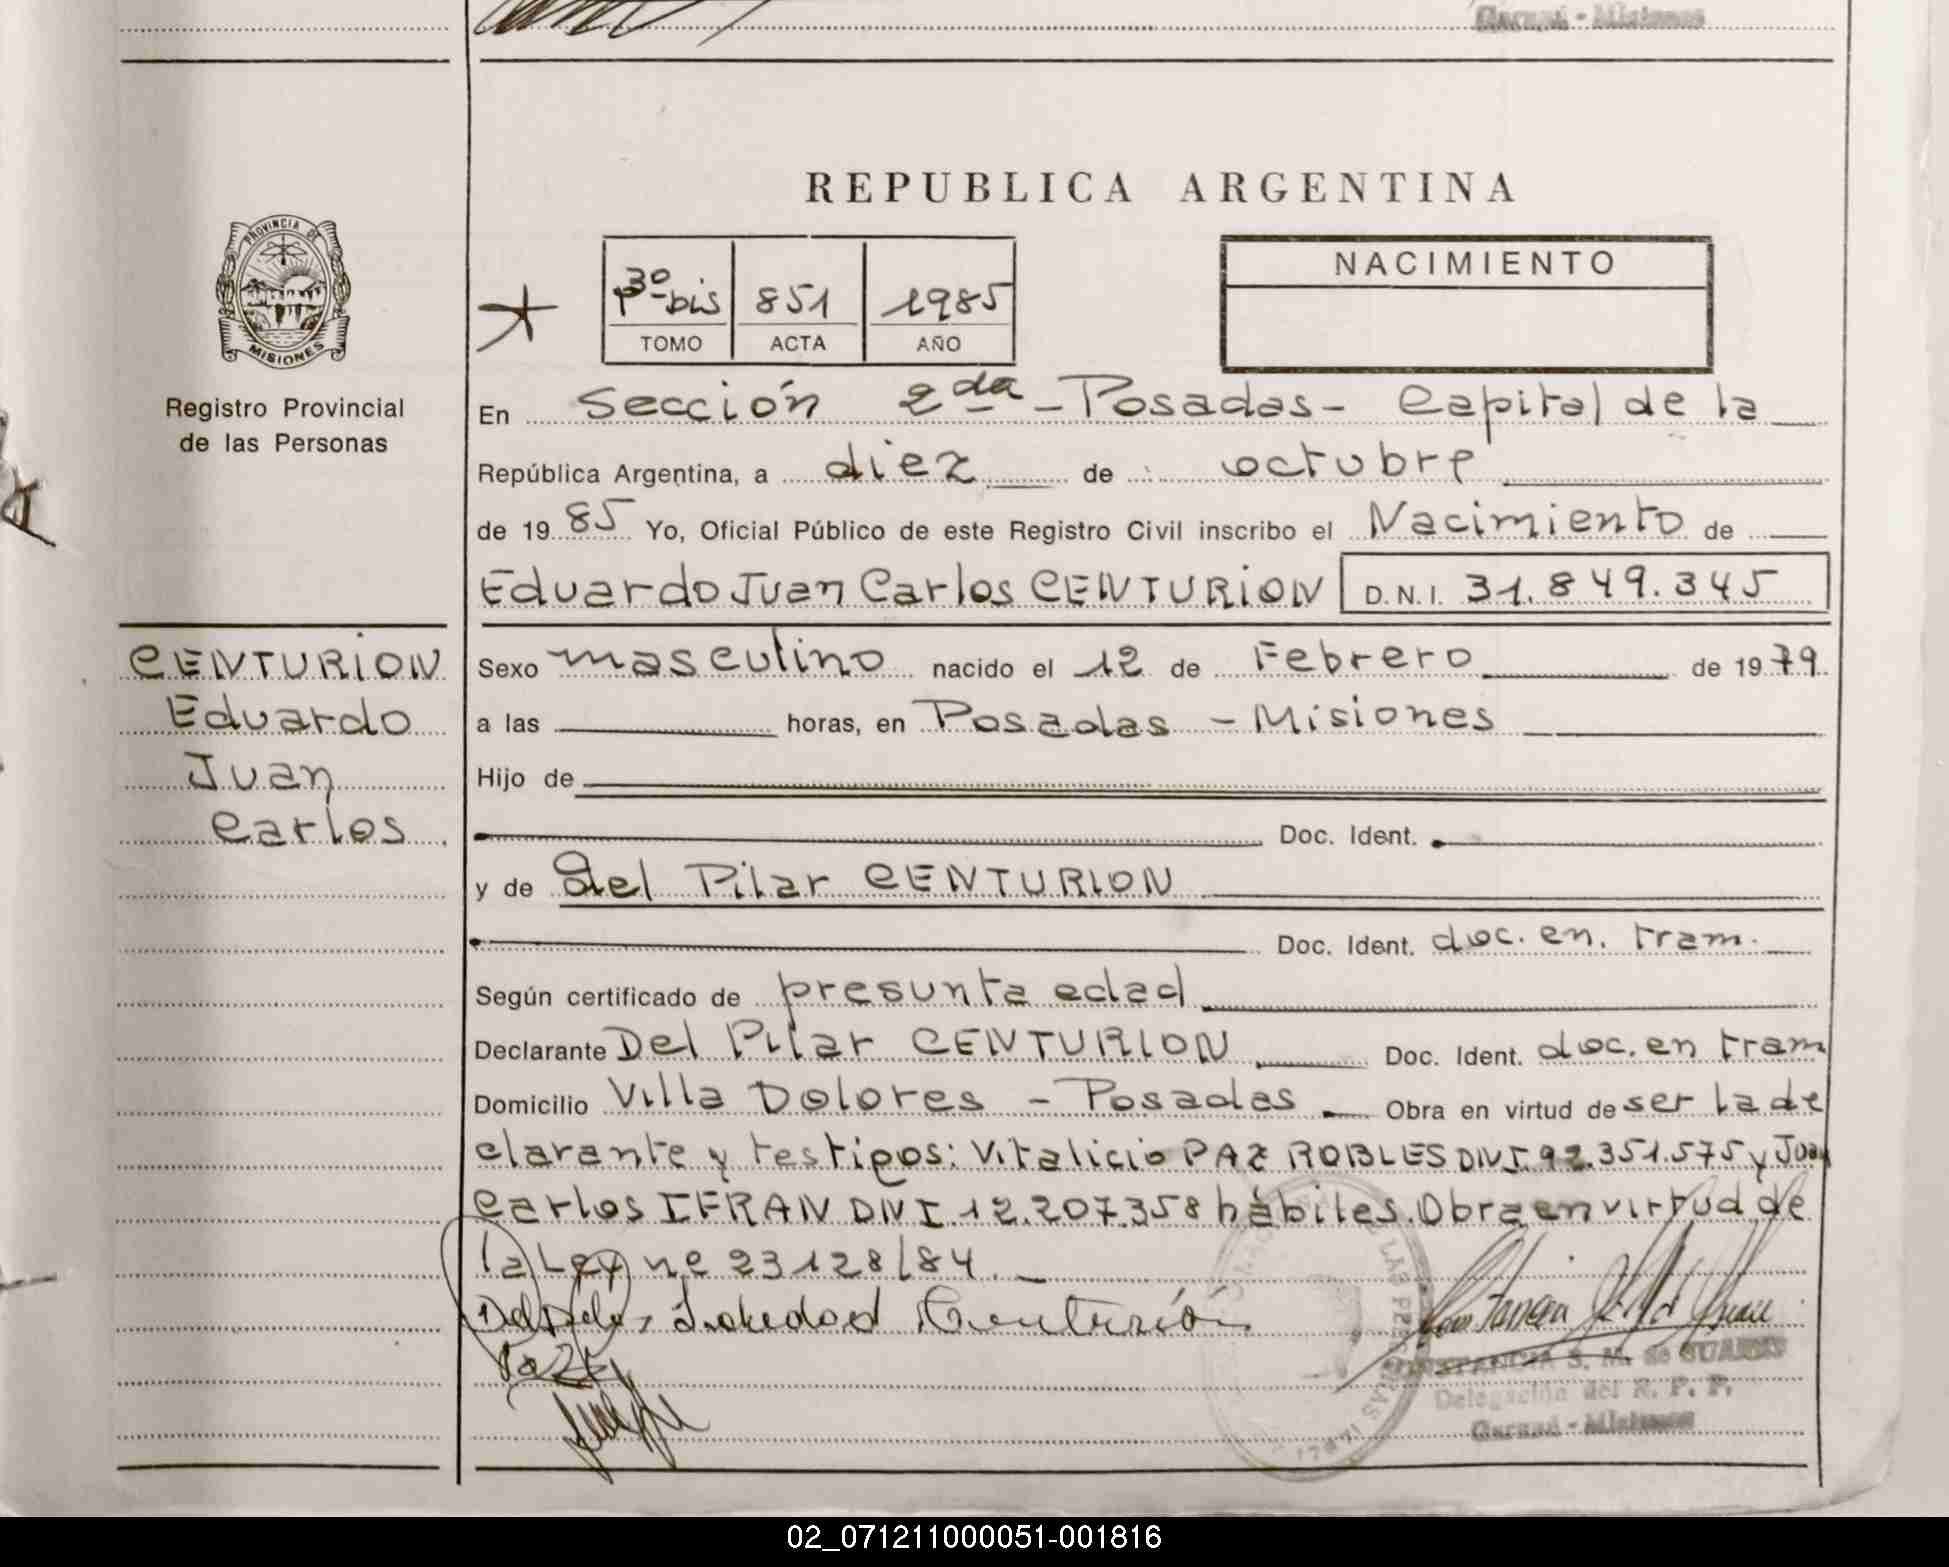 Garupá - Misiones
REPUBLICA ARGENTINA
PROVINCIA DE
MISIONES
Registro Provincial
de las Personas
3º bis 851 1985
TOMO ACTA AÑO
NACIMIENTO
En Sección 2da - Posadas - Capital de la
República Argentina, a diez de octubre
de 1985 Yo, Oficial Público de este Registro Civil inscribo el Nacimiento de
Eduardo Juan Carlos CENTURION D.N.I. 31.849.345
CENTURION
Eduardo
Juan
Carlos
Sexo masculino nacido el 12 de Febrero de 1979
a las horas, en Posadas - Misiones
Hijo de
Doc. Ident.
y de Del Pilar CENTURION
Doc. Ident. doc. en. tram.
Según certificado de presunta edad
Declarante Del Pilar CENTURION Doc. Ident. doc. en tram
Domicilio Villa Dolores - Posadas Obra en virtud de ser la de
clarante y testigos: Vitalicio PAZ ROBLES DNI 92.351.575 y Juan
Carlos IFRAN DNI 12.207.358 hábiles. Obra en virtud de
la Ley ne 23128/84.
Soledad Centurión
CONSTANCIA S. M. de SUAREZ
Delegación del R. P. P.
Garupá - Misiones
02_071211000051-001816